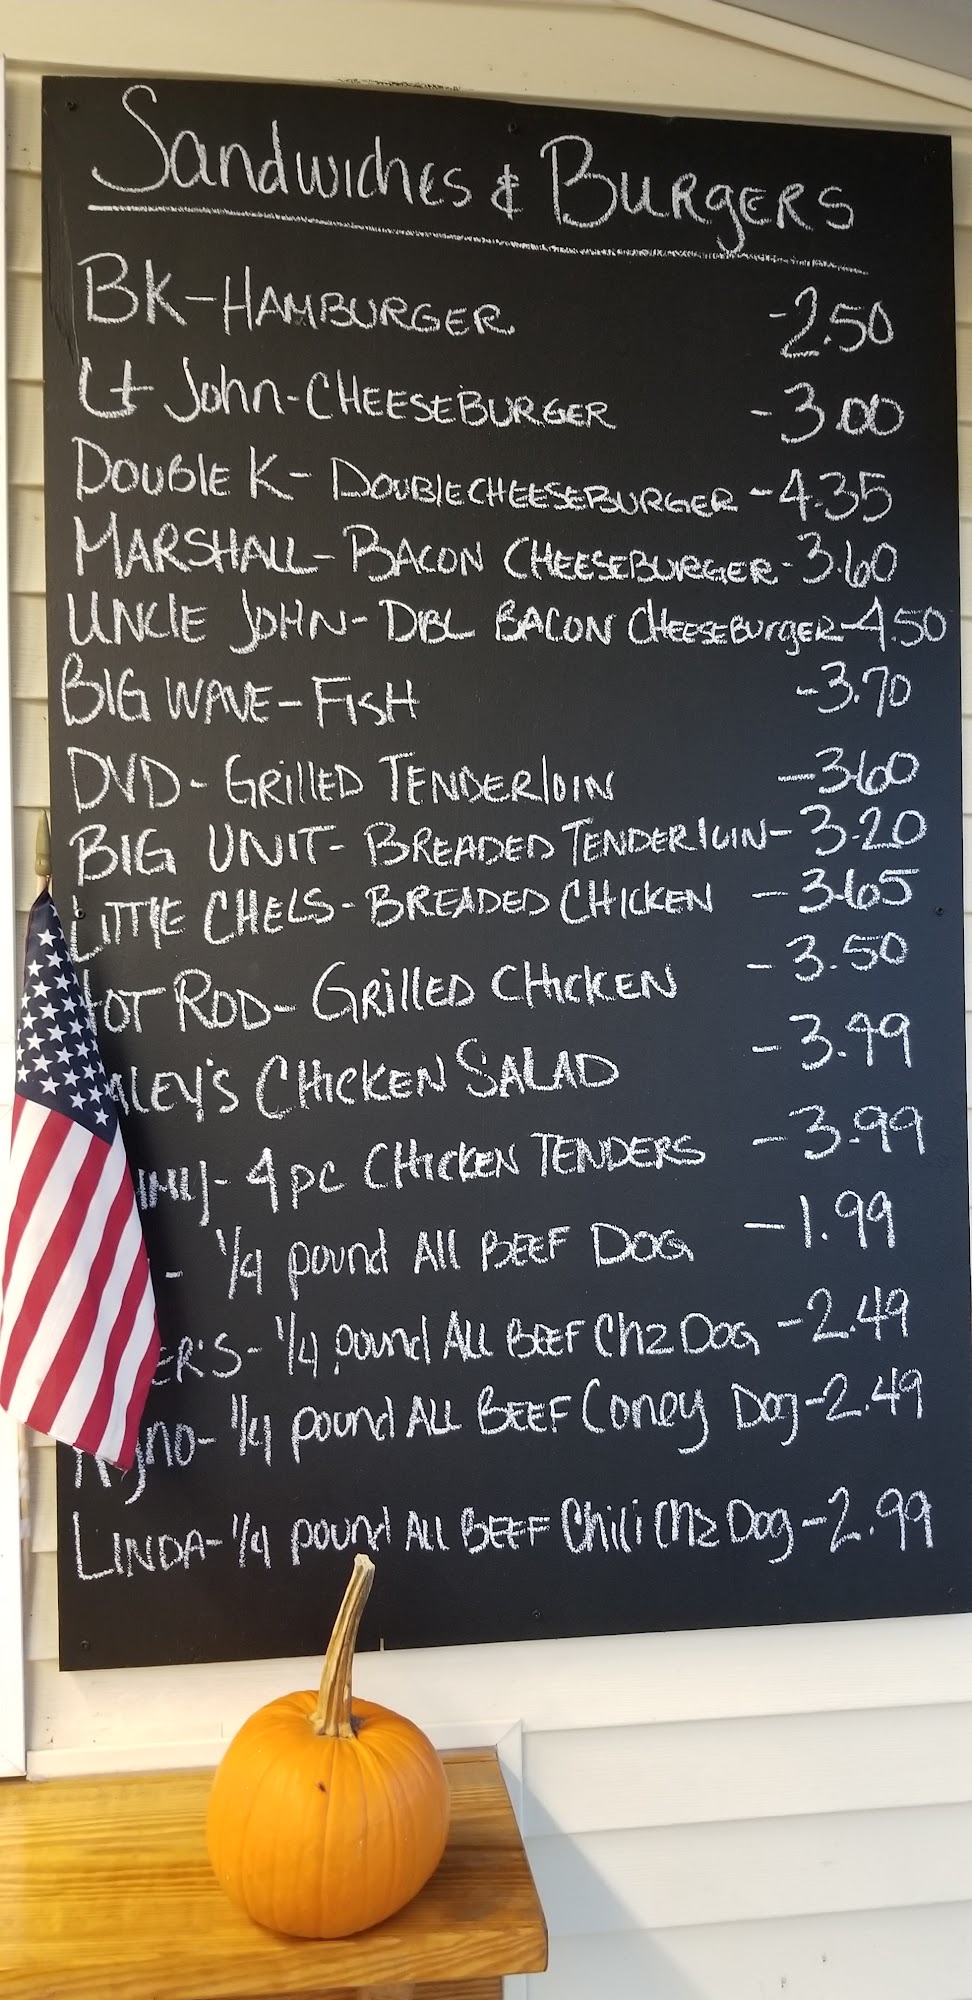 Sandwiches & BURgERS
BK-HAMBURGER -2.50
Lt John-CHEESEBURGER -3.00
DOUBlE K- DOUBlECHEESEBURGER -4.35
MARSHALL- BACON CHEESEBURGER-3.60
UNClE JOHN- DBL BACON CHEESEBURgER-4.50
BIG WAVE-FISH -3.70
DVD- GRillED TENDERlOIN -3.60
BIG UNIT- BREADED TENDERlOIN-3.20
LITTlE CHELS-BREADED CHICKEN -3.65
HOT ROD- GRillED CHICKEN -3.50
CHICKEN SALAD -3.49
4 pc CHICKEN TENDERS -3.99
- 1/4 pound All BEEF DOG -1.99
ER'S- 1/4 pound All BEEF Chz DOG -2.49
1/4 pound ALL BEEF Coney Dog-2.49
LINDA-1/4 pound All BEEF Chili Chz Dog-2.99